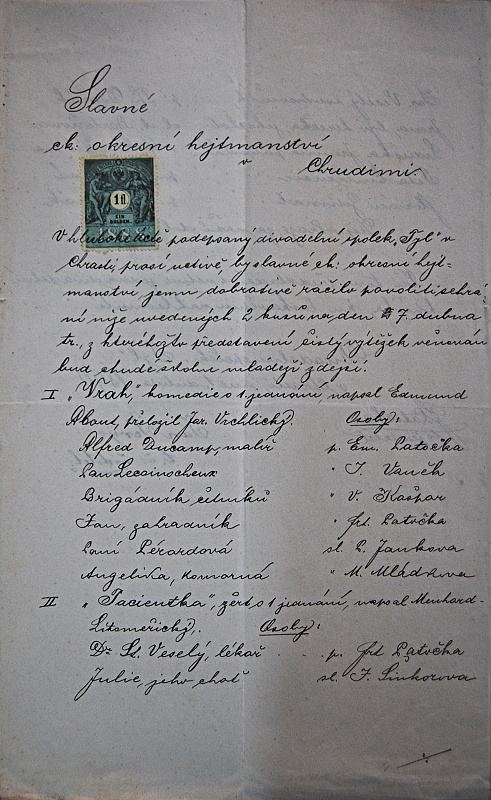 Slavné
ck: okresní hejtmanství
v
Chrudimi.
1 fl
EIN
GULDEN
V hluboké úctě podepsaný divadelní spolek „Tyl" v
Chrasti, prosí uctivě, by slavné ck: okresní hejt-
manství jemu dobrotivě ráčilo povoliti, sehrá-
ní níže uvedených 2 kusů na den 7. dubna
tr., z kteréhožto představení čistý výtěžek věnován
bud chudé školní mládeži zdejší.
I „Vrah", komedie o 1 jednání napsal Edmund
About, přeložil Jar. Vrchlický. Osoby:
Alfred Ducamp, malíř p. Em. Patočka
Pan Lecaincheux " J. Vaněk
Brigádník četníků " V. Kašpar
Jan, zahradník " frt. Patočka
Paní Pérardová sl. P. Jankova
Angelika, komorná " M. Mládkova
II „Pacientka", žert o 1 jednání, napsal Menhard-
Litoměřický. Osoby:
Dr. St. Veselý, lékař p. frt Patočka
Julie, jeho choť sl. F. Sinkorova